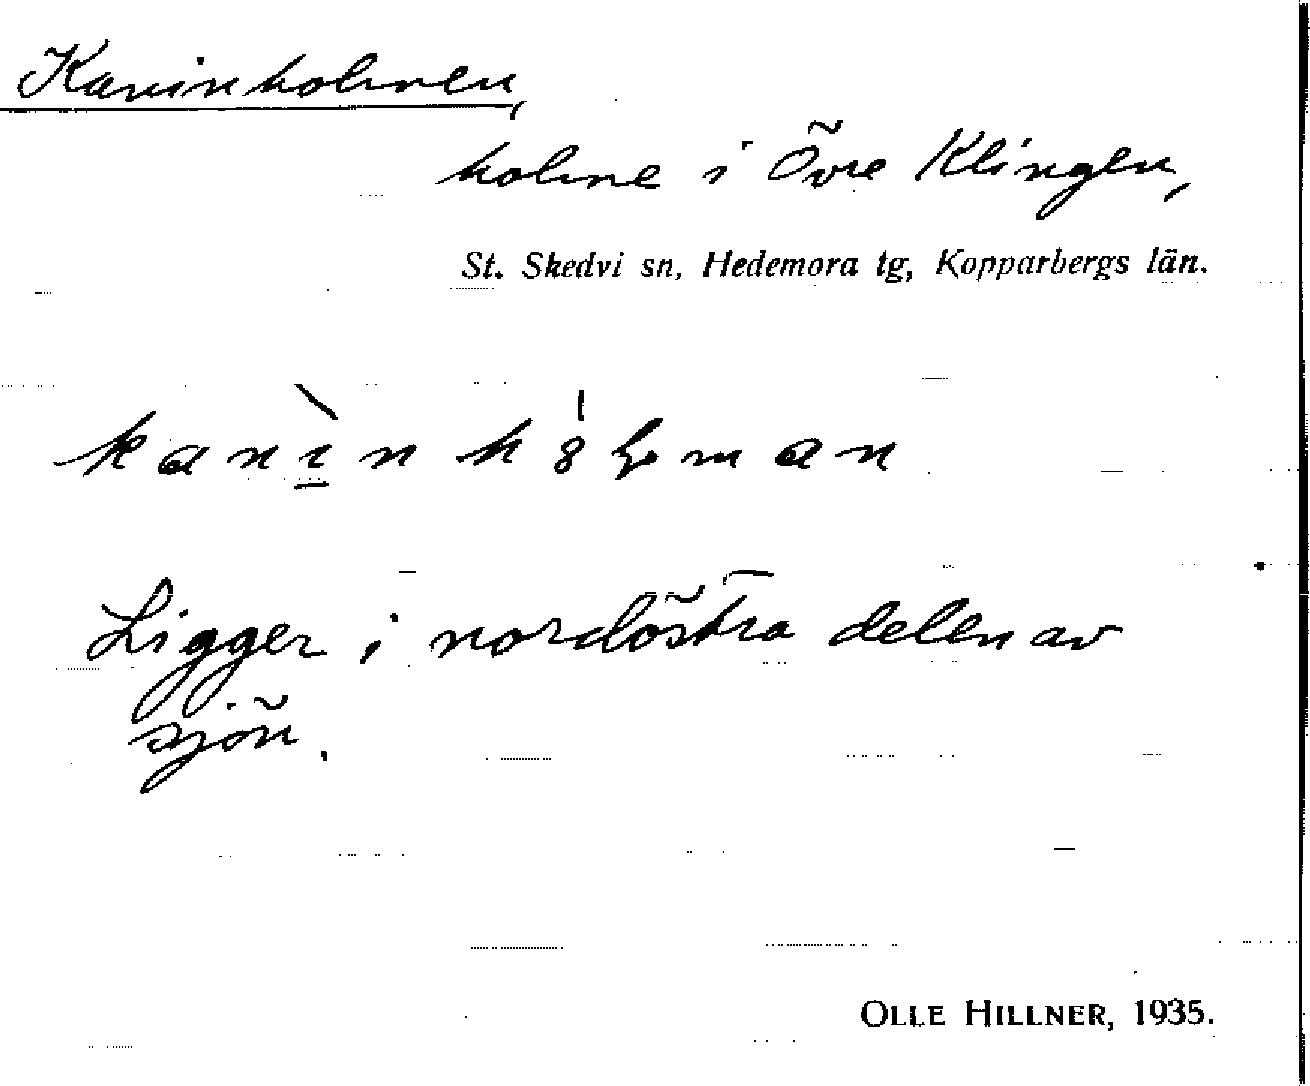 Kaninholmen,
holme i Övre Klingen,
St. Skedvi sn, Hedemora tg, Kopparbergs län.
Ligger i nordöstra delen av
sjön.
OLLE HILLNER, 1935.